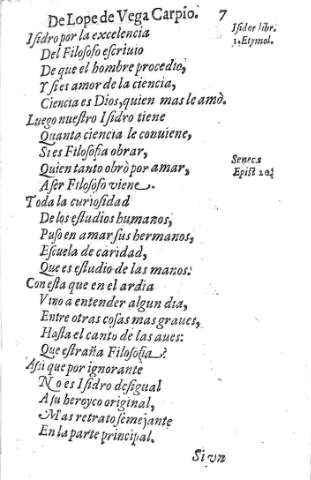 De Lope de Vega Carpio. 7
Isidro por la excelencia
Isidor libr.
Del Filosofo escriuio
1. Etymol.
De que el hombre procedio,
Y si es amor de la ciencia,
Ciencia es Dios, quien mas le amò.
Luego nuestro Isidro tiene
Quanta ciencia le conuiene,
Si es Filosofia obrar,
Seneca
Quien tanto obrò por amar,
Epist
A ser Filosofo viene.
Toda la curiosidad
De los estudios humanos,
Puso en amar sus hermanos,
Escuela de caridad,
Que es estudio de las manos:
Con esta que en el ardia
Vino a entender algun dia,
Entre otras cosas mas graues,
Hasta el canto de las aues:
Que estraña Filosofia?
Asi que por ignorante
No es Isidro desigual
A su heroyco original,
Mas retrato semejante
En la parte principal.
Si vn